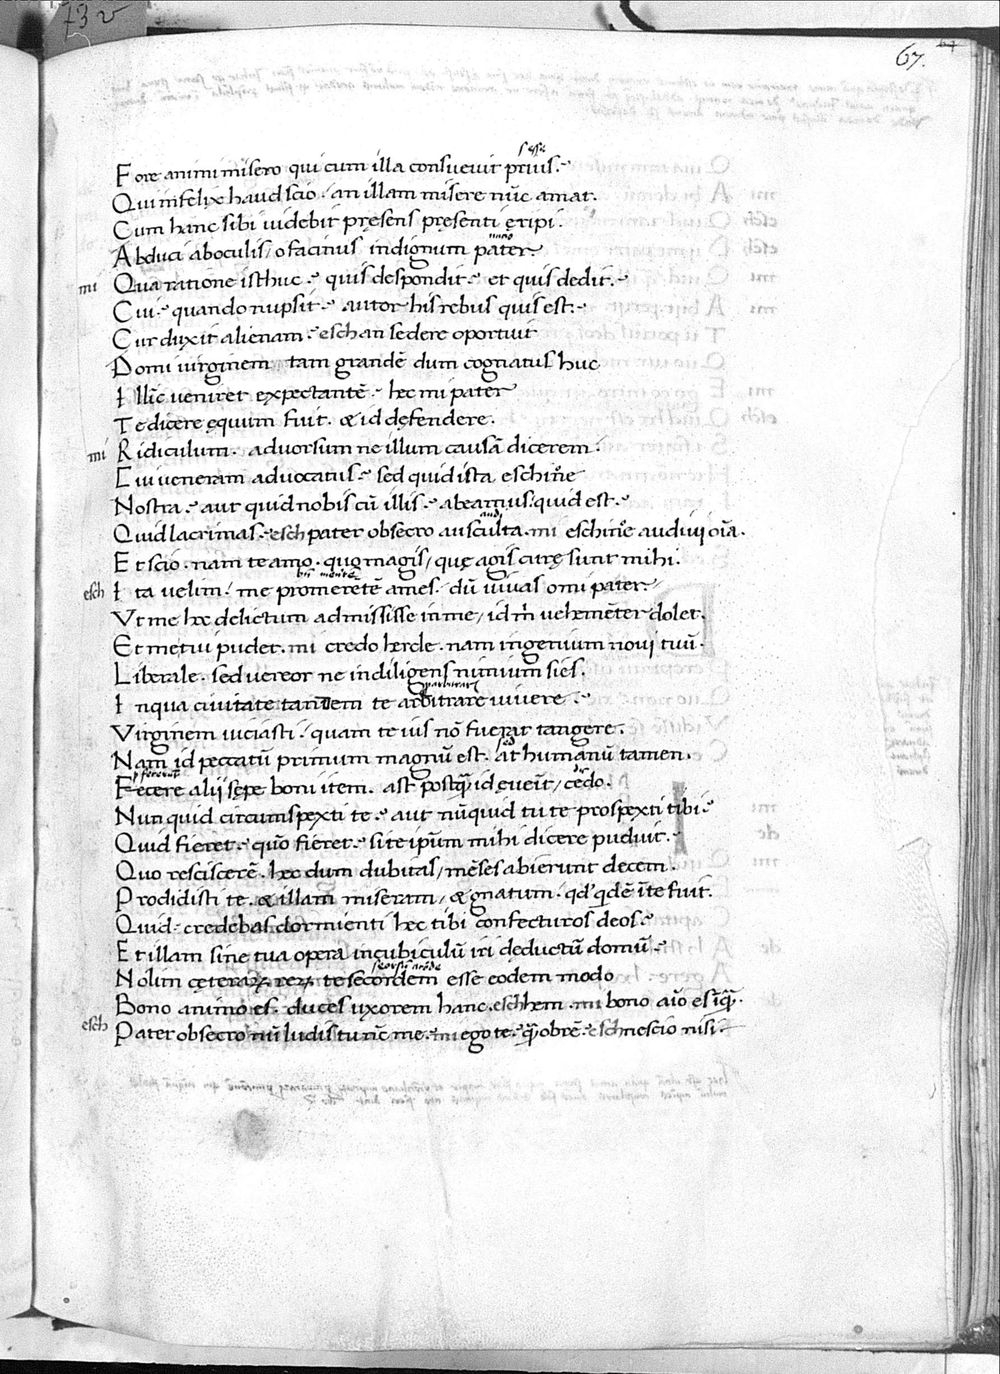 73 v
67.
sese
Fore animi misero qui cum illa consuevit prius.
Qui infelix haud scio. an illam misere nũc amat.
Cum hanc sibi videbit pręsens pręsenti eripi.
Abduci ab oculis / o facinus indignum pater
mi Qua ratione isthuc. quis despondit. et quis dedit.
Cui. quando nupsit. autor his rebus quis est.
Cur duxit alienam. esch an sedere oportuit
Domi virginem tam grandẽ dum cognatus huc
Illĩc veniret expectantẽ. hec mi pater
Te dicere ęquum fuit. & id defendere.
mi Ridiculum. advorsum ne illum causã dicerem.
Cui veneram advocatus. sed quid ista eschine
Nostra. aut quid nobis cũ illis. abeamus. quid est.
Quid lacrimas. esch pater obsecro ausculta. mi eschine audivi oĩa.
Et scio. nam te amo. quo magis / quę agis curę sunt mihi.
esch Ita velim. me promeretẽ ames. dũ vivas o mi pater.
Vt me hec delictum admississe in me / id m̃ vehemẽter dolet.
Et me tui pudet. mi credo hercle. nam ingenium novi tuũ.
Liberale. sed vereor ne indiligens nimium sies.
Inqua civitate tandem te arbitrare vivere.
Virginem viciasti. quam te ius nõ fuerat tangere.
Nam id peccatũ primum magnũ est. at humanũ tamen.
Fecere alii sępe boni item. ast postq̃ id eveñt / cedo.
Nun quid circumspexti te. aut nũquid tu te prospexti tibi.
Quid fieret. quõ fieret. si te ipũm mihi dicere puduit.
Quo resciscerẽ. hec dum dubitas / mẽses abierunt decem.
Prodidisti te. & illam miseram / & gnatum. qd' qdẽ ĩte fuit.
Quid. credebas dormienti hec tibi confecturos deos.
Et illam sine tua opera in cubiculũ iri deductũ domũ.
Nolim ceterarꝝ rerꝝ te secordem esse eodem modo
Bono animo es. duces uxorem hanc. esch hem. mi bono aĩo es ĩq̃.
esch Pater obsecro nũ ludis tu nc̃ me. mi ego te. q̃ obrẽ. esch nescio nisi.